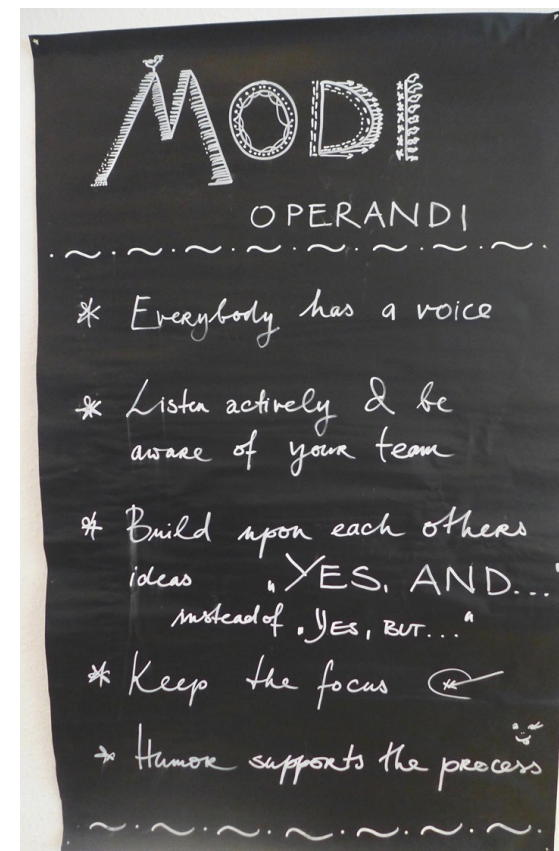 MODI
OPERANDI
* Everybody has a voice
* Listen actively & be
aware of your team
* Build upon each others
ideas „YES, AND..."
instead of „YES, BUT..."
* Keep the focus
* Humor supports the process